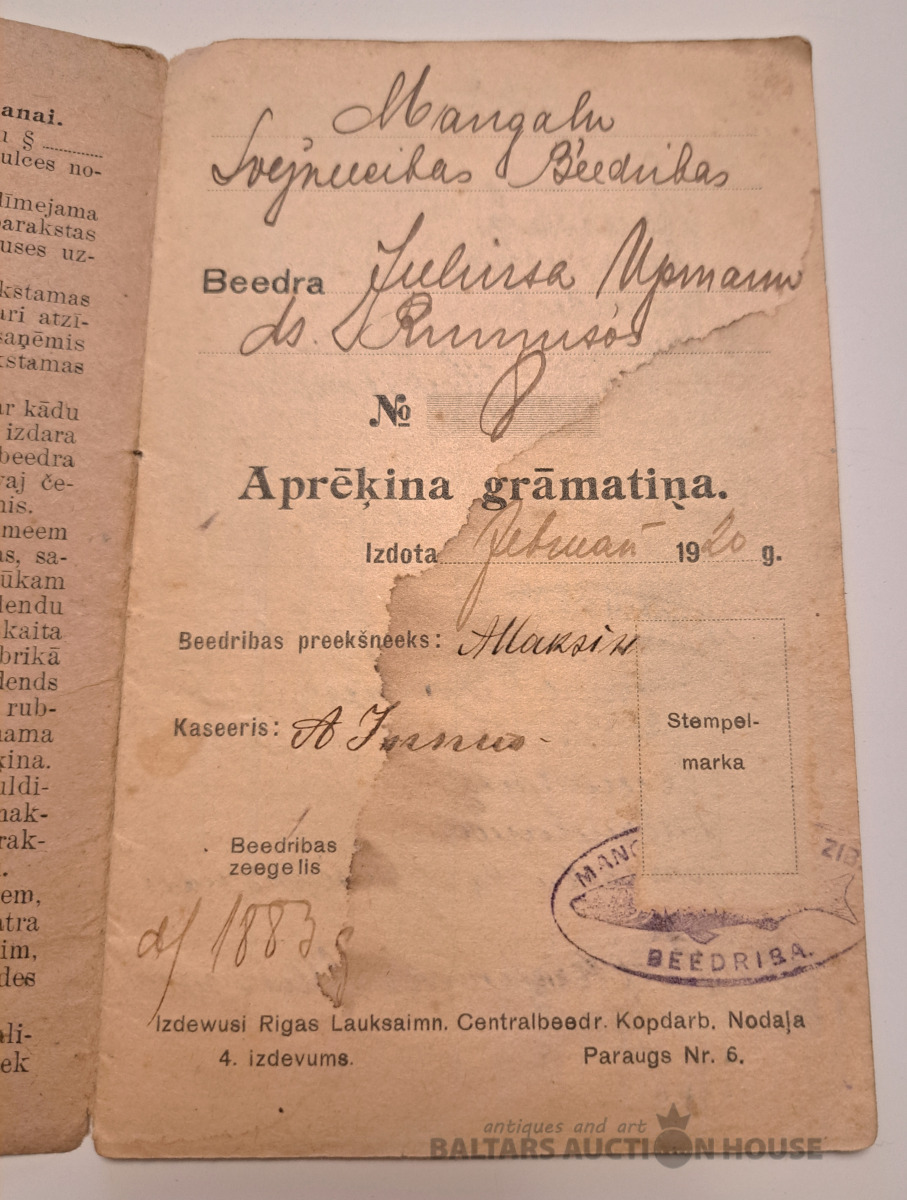 anai.
u §
ulces no-
līmejama
parakstas
uses uz-
kstamas
ari atzī-
saņēmis
kstamas
ar kādu
izdara
beedra
vaj če-
nis.
meem
as, sa-
ūkam
dendu
kaita
brikā
dends
rub-
nama
ķina.
uldi-
mak-
rak-
em,
atra
im,
des
ali-
ek
Mangaļu
Svejneecibas Beedribas
Beedra Juliusa Upmann
ds.
№ 8
Aprēķina grāmatiņa.
Izdota Februarī 1920 g.
Beedribas preekšneeks:
Kaseeris: A
Stempel-
marka
Beedribas
zeegelis
dz 1883 g
MANG ZIB
BEEDRIBA.
Izdewusi Rigas Lauksaimn. Centralbeedr. Kopdarb. Nodaļa
4. izdevums. Paraugs Nr. 6.
antiques and art
BALTARS AUCTION HOUSE